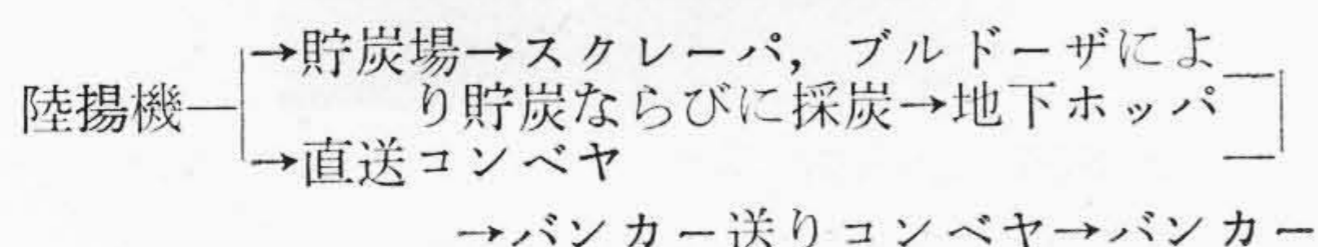 →貯炭場→スクレーパ，ブルドーザによ
陸揚機
り貯炭ならびに採炭→地下ホッパ
→直送コンベヤ
→バンカー送りコンベヤ→バンカー